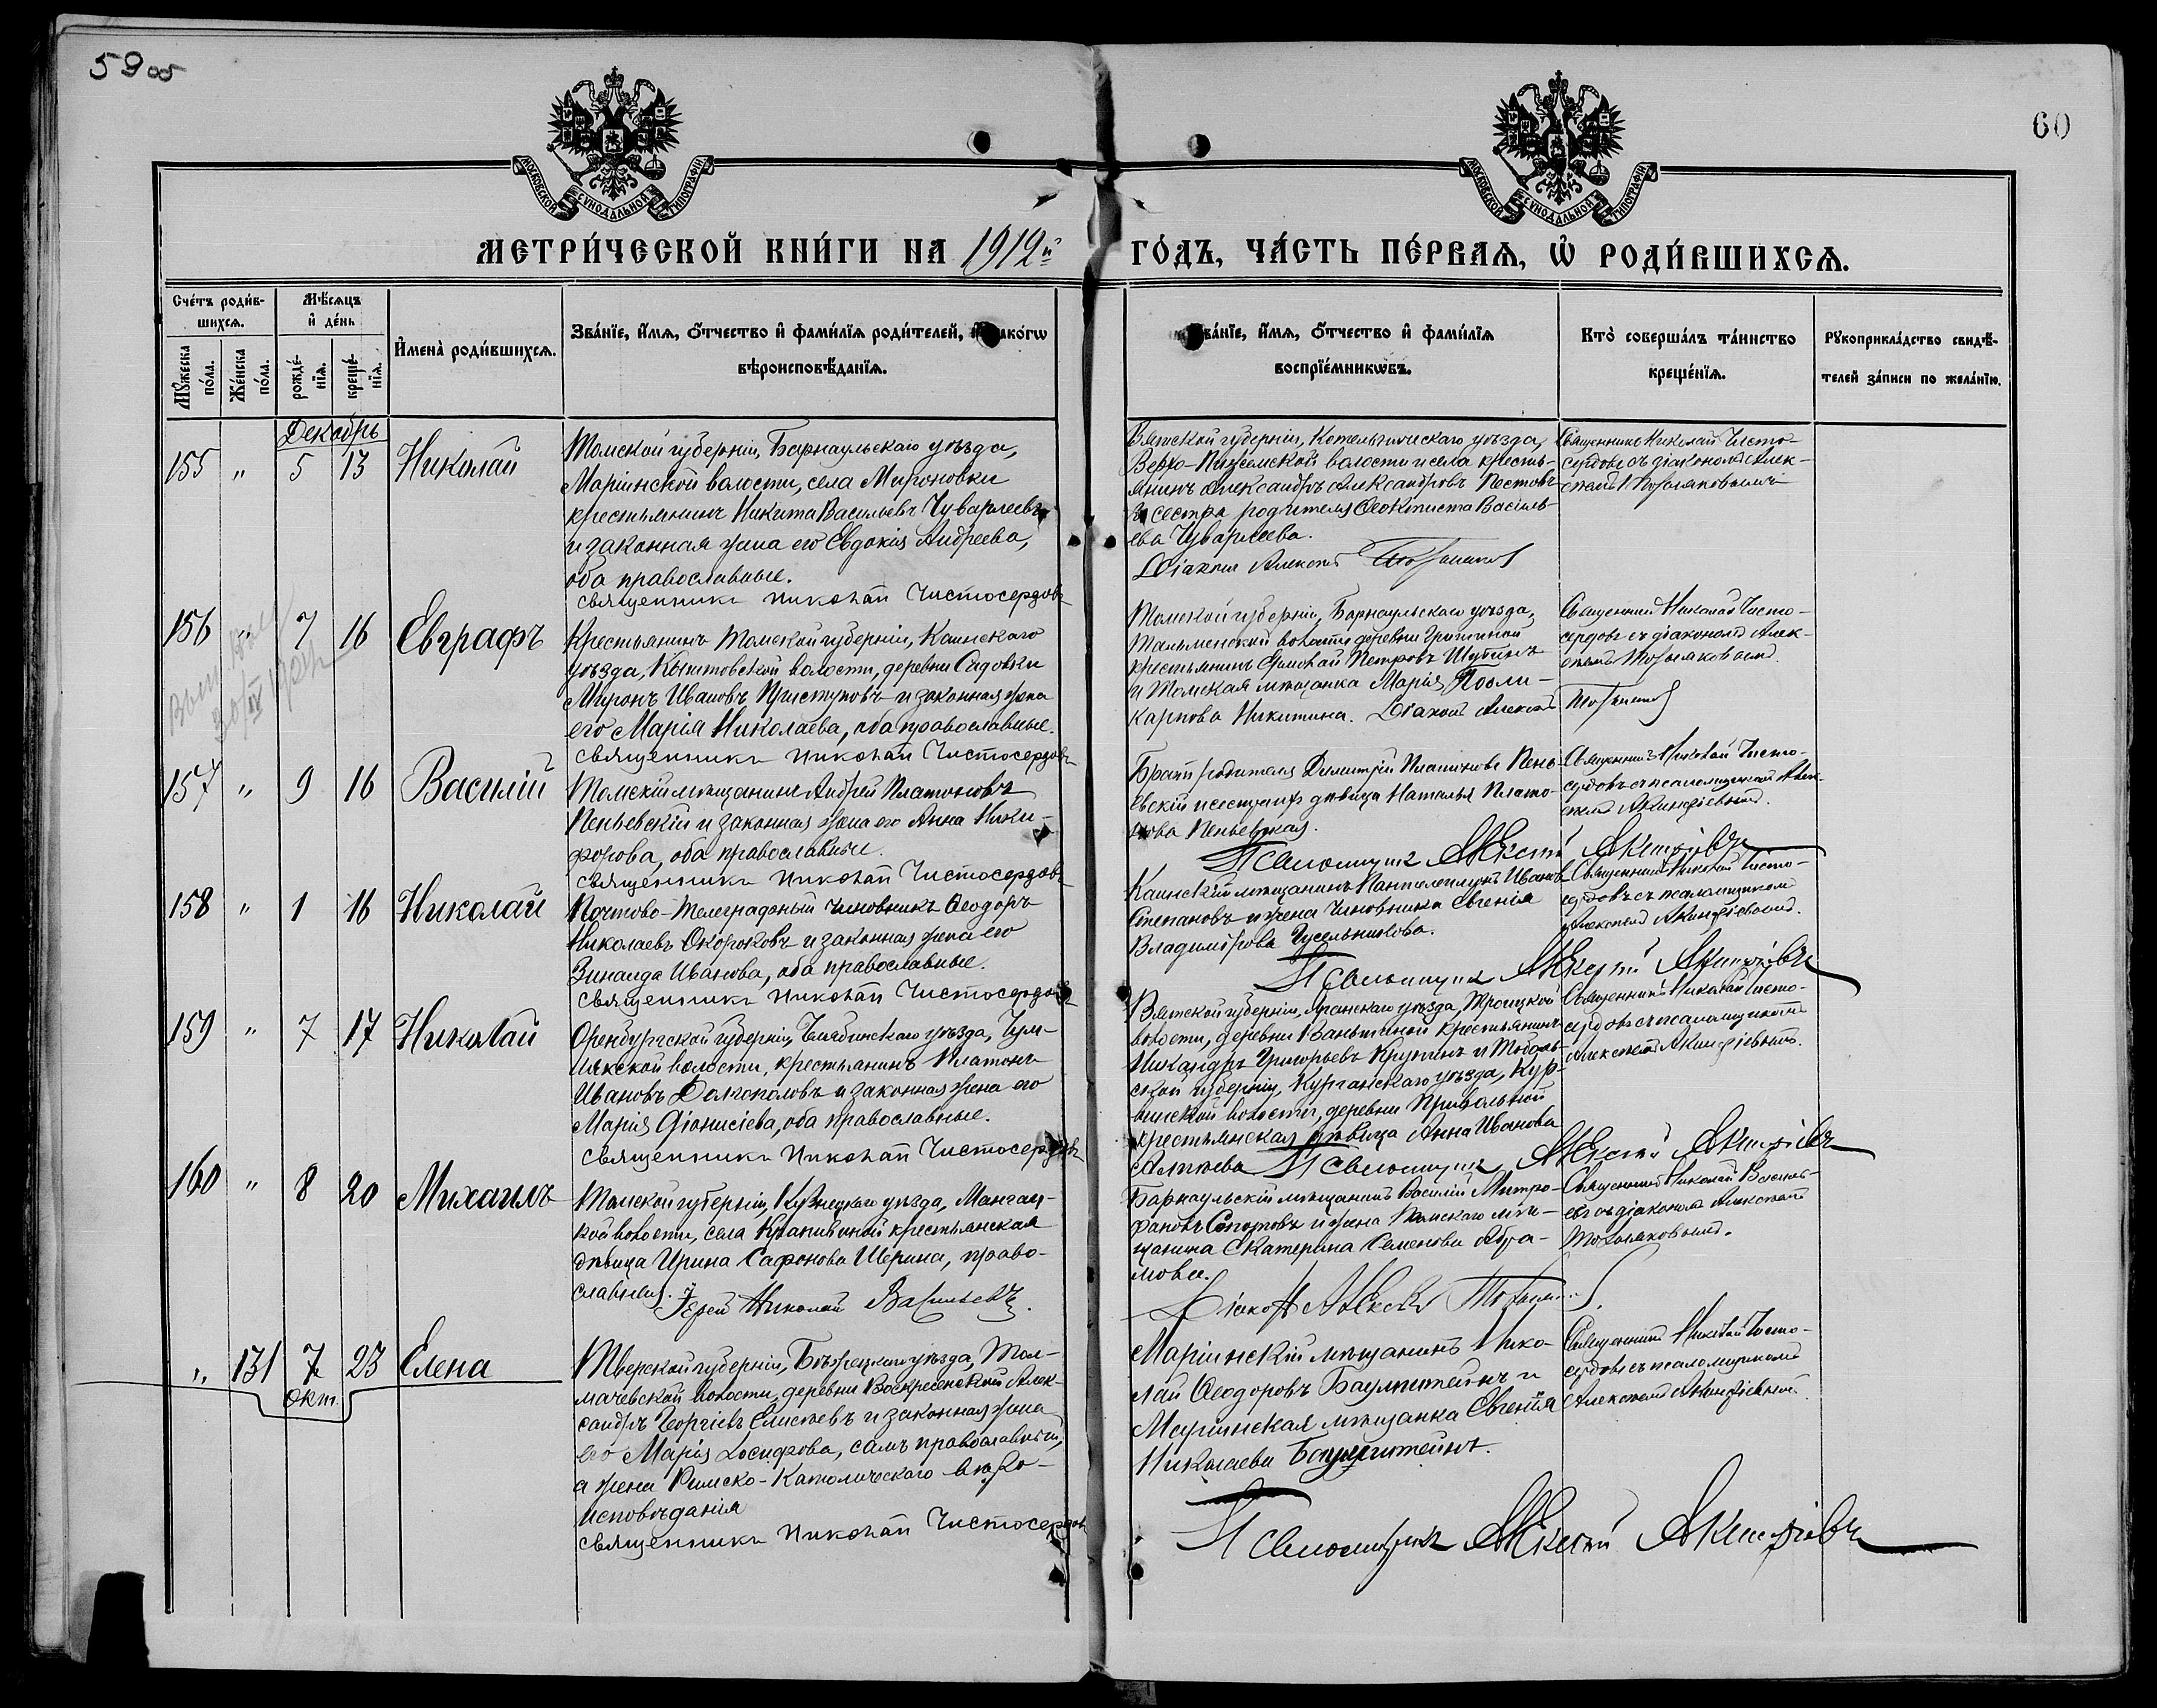 59 об
60
МОСКОВСКОЙ СѴНОДАЛЬНОЙ ТИПОГРАФІИ
МОСКОВСКОЙ СѴНОДАЛЬНОЙ ТИПОГРАФІИ
МЕТРИ́ЧЕСКОЙ КНИ́ГИ НА 1912й ГО́ДЪ, ЧА́СТЬ ПЕ́РВАѦ, Ѽ РОДИ́ВШИХСѦ.
Сче́тъ роди́в-
шихсѧ.
Мꙋжеска по́ла.
Же́нска по́ла.
Мѣ́сѧцъ
и҆ де́нь
рожде́-
нїѧ.
креще́-
нїѧ.
И҆мена̀ роди́вшихсѧ.
Зва́нїе, и҆́мѧ, ѻ҆́тчество и҆ фами́лїѧ роди́телей, и҆ како́гѡ
вѣроисповѣ́данїѧ.
Зва́нїе, и҆́мѧ, ѻ҆́тчество и҆ фами́лїѧ
воспрїе́мникѡвъ.
Кто̀ соверша́лъ та́инство
креще́нїѧ.
Рꙋкоприкла́дство свидѣ́-
телей за́писи по жела́нїю.
Декабрь
155 " 5 13 Николай
Томской губерніи, Барнаульскаго уѣзда,
Маріинской волости, села Мироновки
крестьянинъ Никита Васильевъ Чуварлеевъ
и законная жена его Евдокія Андреева,
оба православные.
священникъ Николай Чистосердовъ
Вятской губерніи, Котельничскаго уѣзда,
Верхо-Пижемской волости и села кресть-
янинъ Александръ Александровъ Пестовъ
и сестра родителя Ѳеоктиста Василь-
ева Чуварлеева.
Діаконъ Алексѣй
Священникъ Николай Чисто-
сердовъ съ діакономъ Алек-
сѣемъ
156 " 7 16 Евграфъ
Крестьянинъ Томской губерніи, Каинскаго
уѣзда, Кыштовской волости, деревни Садовки
Миронъ Ивановъ Приступовъ и законная жена
его Марія Николаева, оба православные.
священникъ Николай Чистосердовъ
Томской губерніи, Барнаульскаго уѣзда,
Тальменской волости деревни
крестьянинъ Ермолай Петровъ Шубинъ
и Томская мѣщанка Марія Поли-
карпова Никитина. Діаконъ Алексѣй
Священникъ Николай Чисто-
сердовъ съ діакономъ Алек-
сѣемъ
157 " 9 16 Василій
Томскій мѣщанинъ Андрей Платоновъ
Пеньевскій и законная жена его Анна Ники-
форова, оба православные.
священникъ Николай Чистосердовъ
Братъ родителя Димитрій Платоновъ Пень-
евскій и сестра ихъ дѣвица Наталья Плато-
нова Пеньевская.
Псаломщикъ Алексѣй Акинфіевъ
Священникъ Николай Чисто-
сердовъ съ псаломщикомъ Алек-
сѣемъ Акинфіевымъ.
158 " 1 16 Николай
Почтово-Телеграфный чиновникъ Ѳеодоръ
Николаевъ Окороковъ и законная жена его
Зинаида Иванова, оба православные.
священникъ Николай Чистосердовъ
Каинскій мѣщанинъ Пантелеимонъ Ивановъ
Степановъ и жена чиновника Евгенія
Владимірова Гусельникова.
Псаломщикъ Алексѣй Акинфіевъ
Священникъ Николай Чисто-
сердовъ съ псаломщикомъ
Алексѣемъ Акинфіевымъ.
159 " 7 17 Николай
Оренбургской губерніи, Челябинскаго уѣзда, Чум-
лякской волости, крестьянинъ Платонъ
Ивановъ Долгополовъ и законная жена его
Марія Діонисіева, оба православные.
священникъ Николай Чистосердовъ
Вятской губерніи, Яранскаго уѣзда, Троицкой
волости, деревни Ванькиной крестьянинъ
Никандръ Григорьевъ Крупинъ и Тоболь-
ской губерніи, Курганскаго уѣзда,
волости, деревни Привольной
крестьянская дѣвица Анна Иванова
Псаломщикъ Алексѣй Акинфіевъ
Священникъ Николай Чисто-
сердовъ съ псаломщикомъ
Алексѣемъ Акинфіевымъ.
160 " 8 20 Михаилъ
Томской губерніи, Кузнецкаго уѣзда,
кой волости, села Крапивиной крестьянская
дѣвица Ирина Сафонова Шерина, право-
славная. Іерей Николай Васильевъ.
Барнаульскій мѣщанинъ Василій Митро-
фановъ и жена Томскаго мѣ-
щанина Екатерина Семенова Абра-
мова.
Діаконъ Алексѣй
Священникъ Николай Василь-
евъ съ діакономъ Алексѣемъ
" 131 7 окт. 23 Елена
Тверской губерніи, Бѣжецкаго уѣзда, Тол-
мачевской волости, деревни Воскресенской Алек-
сандръ Георгіевъ Елисѣевъ и законная жена
его Марія Іосифова, самъ православный,
а жена Римско-Католическаго вѣро-
исповѣданія
священникъ Николай Чистосердовъ
Маріинскій мѣщанинъ Нико-
лай Ѳеодоровъ Баумштейнъ и
Маріинская мѣщанка Евгенія
Николаева Баумштейнъ.
Псаломщикъ Алексѣй Акинфіевъ
Священникъ Николай Чисто-
сердовъ съ псаломщикомъ
Алексѣемъ Акинфіевымъ.